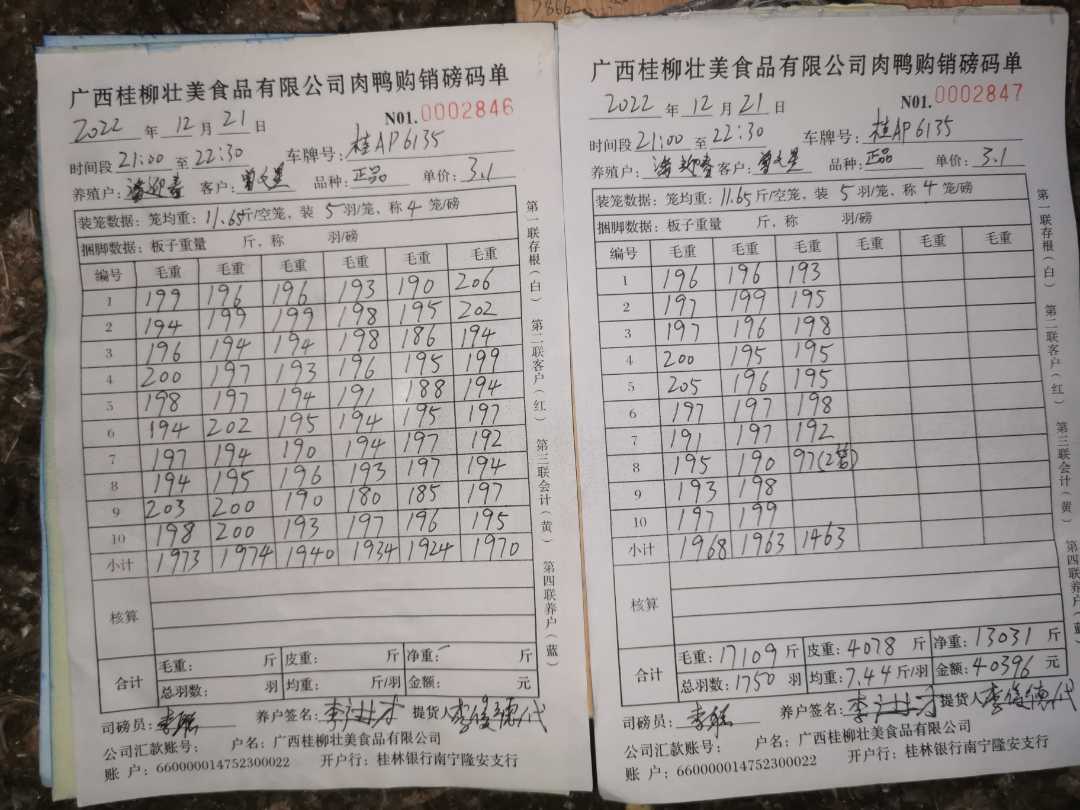 7866
广西桂柳壮美食品有限公司肉鸭购销磅码单
2022 年 12 月 21 日 N01. 0002846
时间段 21:00 至 22:30 车牌号: 桂AP6135
养殖户: 客户: 品种: 正品 单价: 3.1
装笼数据: 笼均重: 11.65 斤/空笼, 装 5 羽/笼, 称 4 笼/磅
捆脚数据: 板子重量 斤, 称 羽/磅
编号 毛重 毛重 毛重 毛重 毛重 毛重
1 199 196 196 193 190 206
2 194 199 199 198 195 202
3 196 194 194 198 186 194
4 200 197 193 196 195 199
5 198 197 194 191 188 194
6 194 202 195 194 195 197
7 197 194 190 194 197 192
8 194 195 196 193 197 194
9 203 200 190 180 185 197
10 198 200 193 197 196 195
小计 1973 1974 1940 1934 1924 1970
核算
合计 毛重: 斤 皮重: 斤 净重: 斤
总羽数: 羽 均重: 斤/羽 金额: 元
司磅员: 养户签名: 提货人 李俊德代
公司汇款账号: 户名: 广西桂柳壮美食品有限公司
账 户: 660000014752300022 开户行: 桂林银行南宁隆安支行
第一联存根(白) 第二联客户(红) 第三联会计(黄) 第四联养户(蓝)
广西桂柳壮美食品有限公司肉鸭购销磅码单
2022 年 12 月 21 日 N01. 0002847
时间段 21:00 至 22:30 车牌号: 桂AP6135
养殖户: 客户: 品种: 正品 单价: 3.1
装笼数据: 笼均重: 11.65 斤/空笼, 装 5 羽/笼, 称 4 笼/磅
捆脚数据: 板子重量 斤, 称 羽/磅
编号 毛重 毛重 毛重 毛重 毛重 毛重
1 196 196 193
2 197 199 195
3 197 196 198
4 200 195 195
5 205 196 195
6 197 197 198
7 191 197 192
8 195 190 97(2笼)
9 193 198
10 197 199
小计 1968 1963 1463
核算
合计 毛重: 17109 斤 皮重: 4078 斤 净重: 13031 斤
总羽数: 1750 羽 均重: 7.44 斤/羽 金额: 40396 元
司磅员: 养户签名: 提货人 李俊德代
公司汇款账号: 户名: 广西桂柳壮美食品有限公司
账 户: 660000014752300022 开户行: 桂林银行南宁隆安支行
第一联存根(白) 第二联客户(红) 第三联会计(黄) 第四联养户(蓝)